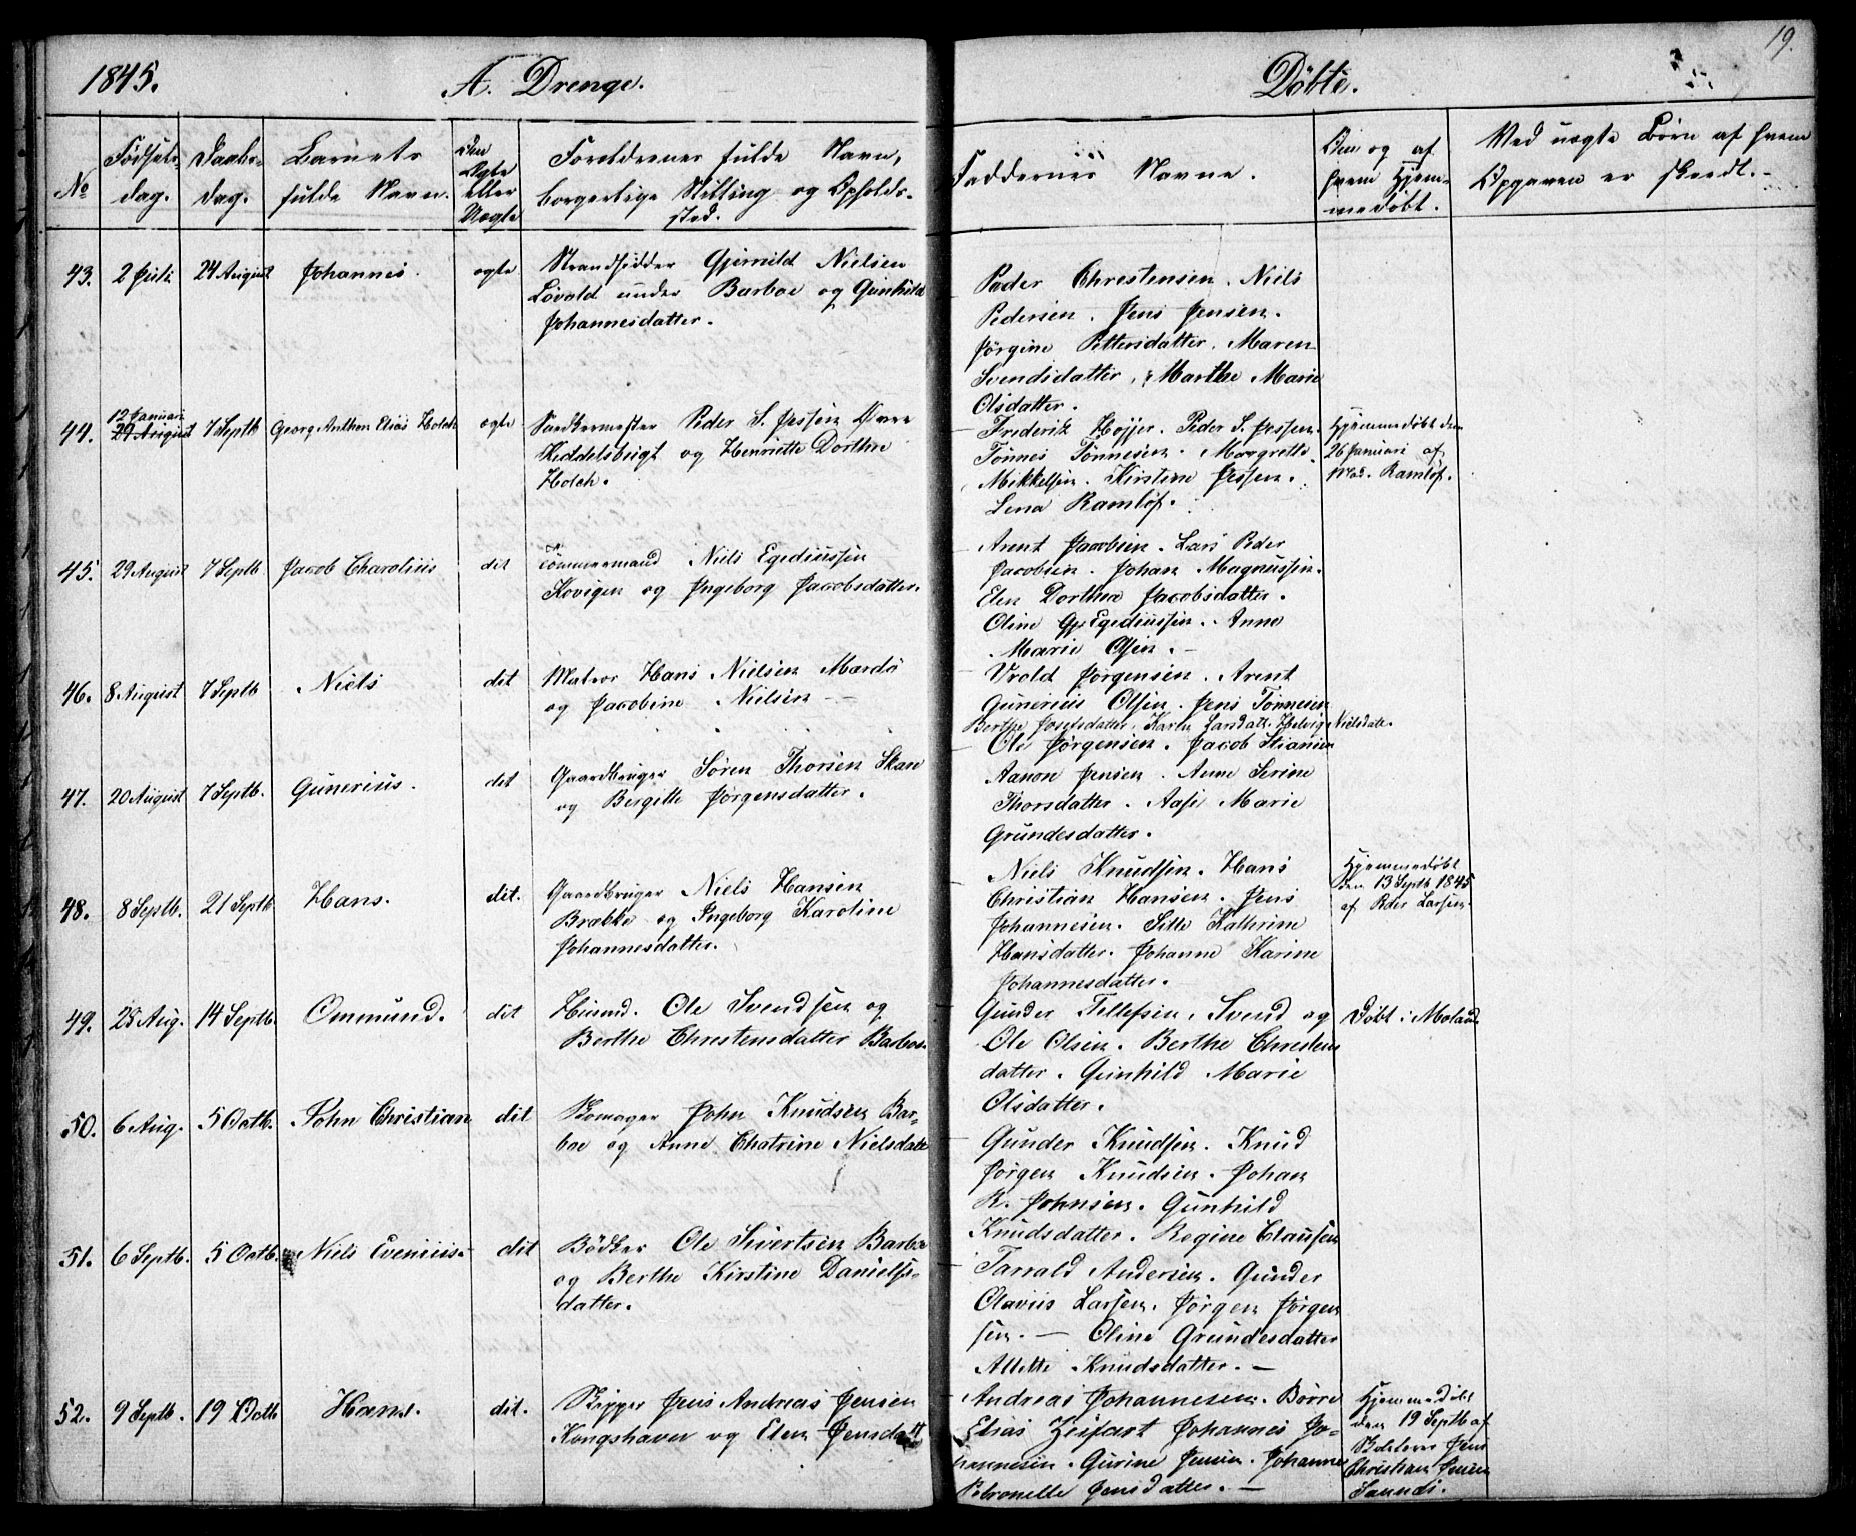 19.
1845. A. Drenge. Døbte.
No
Fødsels-
dag.
Daabs-
dag.
Barnets
fulde Navn.
Om
Ægte
eller
Uægte
Forældrenes fulde Navn,
borgerlige Stilling og Opholds-
sted.
Faddernes Navne.
Om og af
hvem Hjem-
medøbt.
Ved uægte Børn af hvem
Opgaven er skeedt.-
43. 2 Juli 24 August Johannes. ægte
Strandsidder Gjeruld Nielsen
Løvold under Barboe og Gunhild
Johannesdatter.
Peder Christensen. Niels
Pedersen. Jens Jensen.
Jørgine Pettersdatter. Maren
Svendsdatter, Marthe Marie
Olsdatter.
44. 12 Januari
29 August 7 Septb Georg Anthon Elias Holch ægte
Snedkermester Peder S. Jessen
Kiddelsbugt og Henriette Dorthea
Holch.
Frederik Højer. Peder S. Jessen.
Tønnes Tønnesen. Margrethe
Mikkelsen. Kirstine Jessen.
Lena Ramløf.
Hjemmedøbt den
26 Januari af
Mad. Ramløf.
45. 29 August 7 Septb Jacob Charolius dit
Tømmermand Niels Egediussen
Kovigen og Ingeborg Jacobsdatter.
Arent Jacobsen. Lars Peder
Jacobsen. Johan Magnussen.
Elen Dorthea Jacobsdatter.
Oline Egediussen. Anne
Marie Olsen.-
46. 8 August 7 Septb Niels dit
Matros Hans Nielsen Mardø
og Jacobine Nielsen--
Vrold Jørgensen. Arent
Gunerius Olsen. Jens Tønnesen
Berthe Josefsdatter. Karen Larsdatt. Helvig Nielsdatr.
47. 20 August 7 Septb. Gunerius. det
Gaardbruger Søren Thorsen Skare
og Bergitte Jørgensdatter.
Ole Jørgensen. Jacob Stiansen
Aanon Jensen. Anne Serine
Thorsdatter. Aase Marie
Grundesdatter.
48. 8 Septb. 21 Septb Hans. dit.
Gaardbruger Niels Hansen
Brække og Ingeborg Karoline
Johannesdatter.
Niels Knudsen. Hans
Christian Hansen. Jens
Johannesen. Sille Kathrine
Hansdatter. Johanne Karine
Johannesdatter.
Hjemmedøbt
den 13 Septb 1845
af Peder Larsen.
49. 28 Aug. 14 Septb. Ommund. dit
Huusmd. Ole Svendsen og
Berthe Christensdatter Barboe.
Gunder Tellefsen. Svend og
Ole Olsen. Berthe Christens
datter. Gunhild Marie
Olsdatter.
Døbt i Moland
50. 6 Aug. 5 Octb. John Christian dit
Skomager John Knudsen Bar-
boe og Anne Chatrine Nielsdatr
Gunder Knudsen. Knud
Jørgen Knudsen. Johan
K. Johnsen. Gunhild
Knudsdatter. Regine Clausen
51. 6 Septb. 5 Octb. Niels Evenius- dit
Bødker Ole Sivertsen Barboe
og Berthe Kirstine Daniels-
datter.
Tarrald Andersen. Gunder
Olavus Larsen. Jørgen Jørgen
sen.- Oline Grundesdatter
Allette Knudsdatter.-
52. 9 Septb. 19 Octb Hans. dit.
Skipper Jens Andreas Jensen
Kongshavn og Elen Jensdatt
Andreas Johannesen. Børre
Elias Zeifart Johannes Jo-
hannesen. Gurine Jensen. Johanne
Petronelle Jensdatter.-
Hjemmedøbt
den 19 Septb af
Skoleler Jens
Christian Jensen
Sannes.